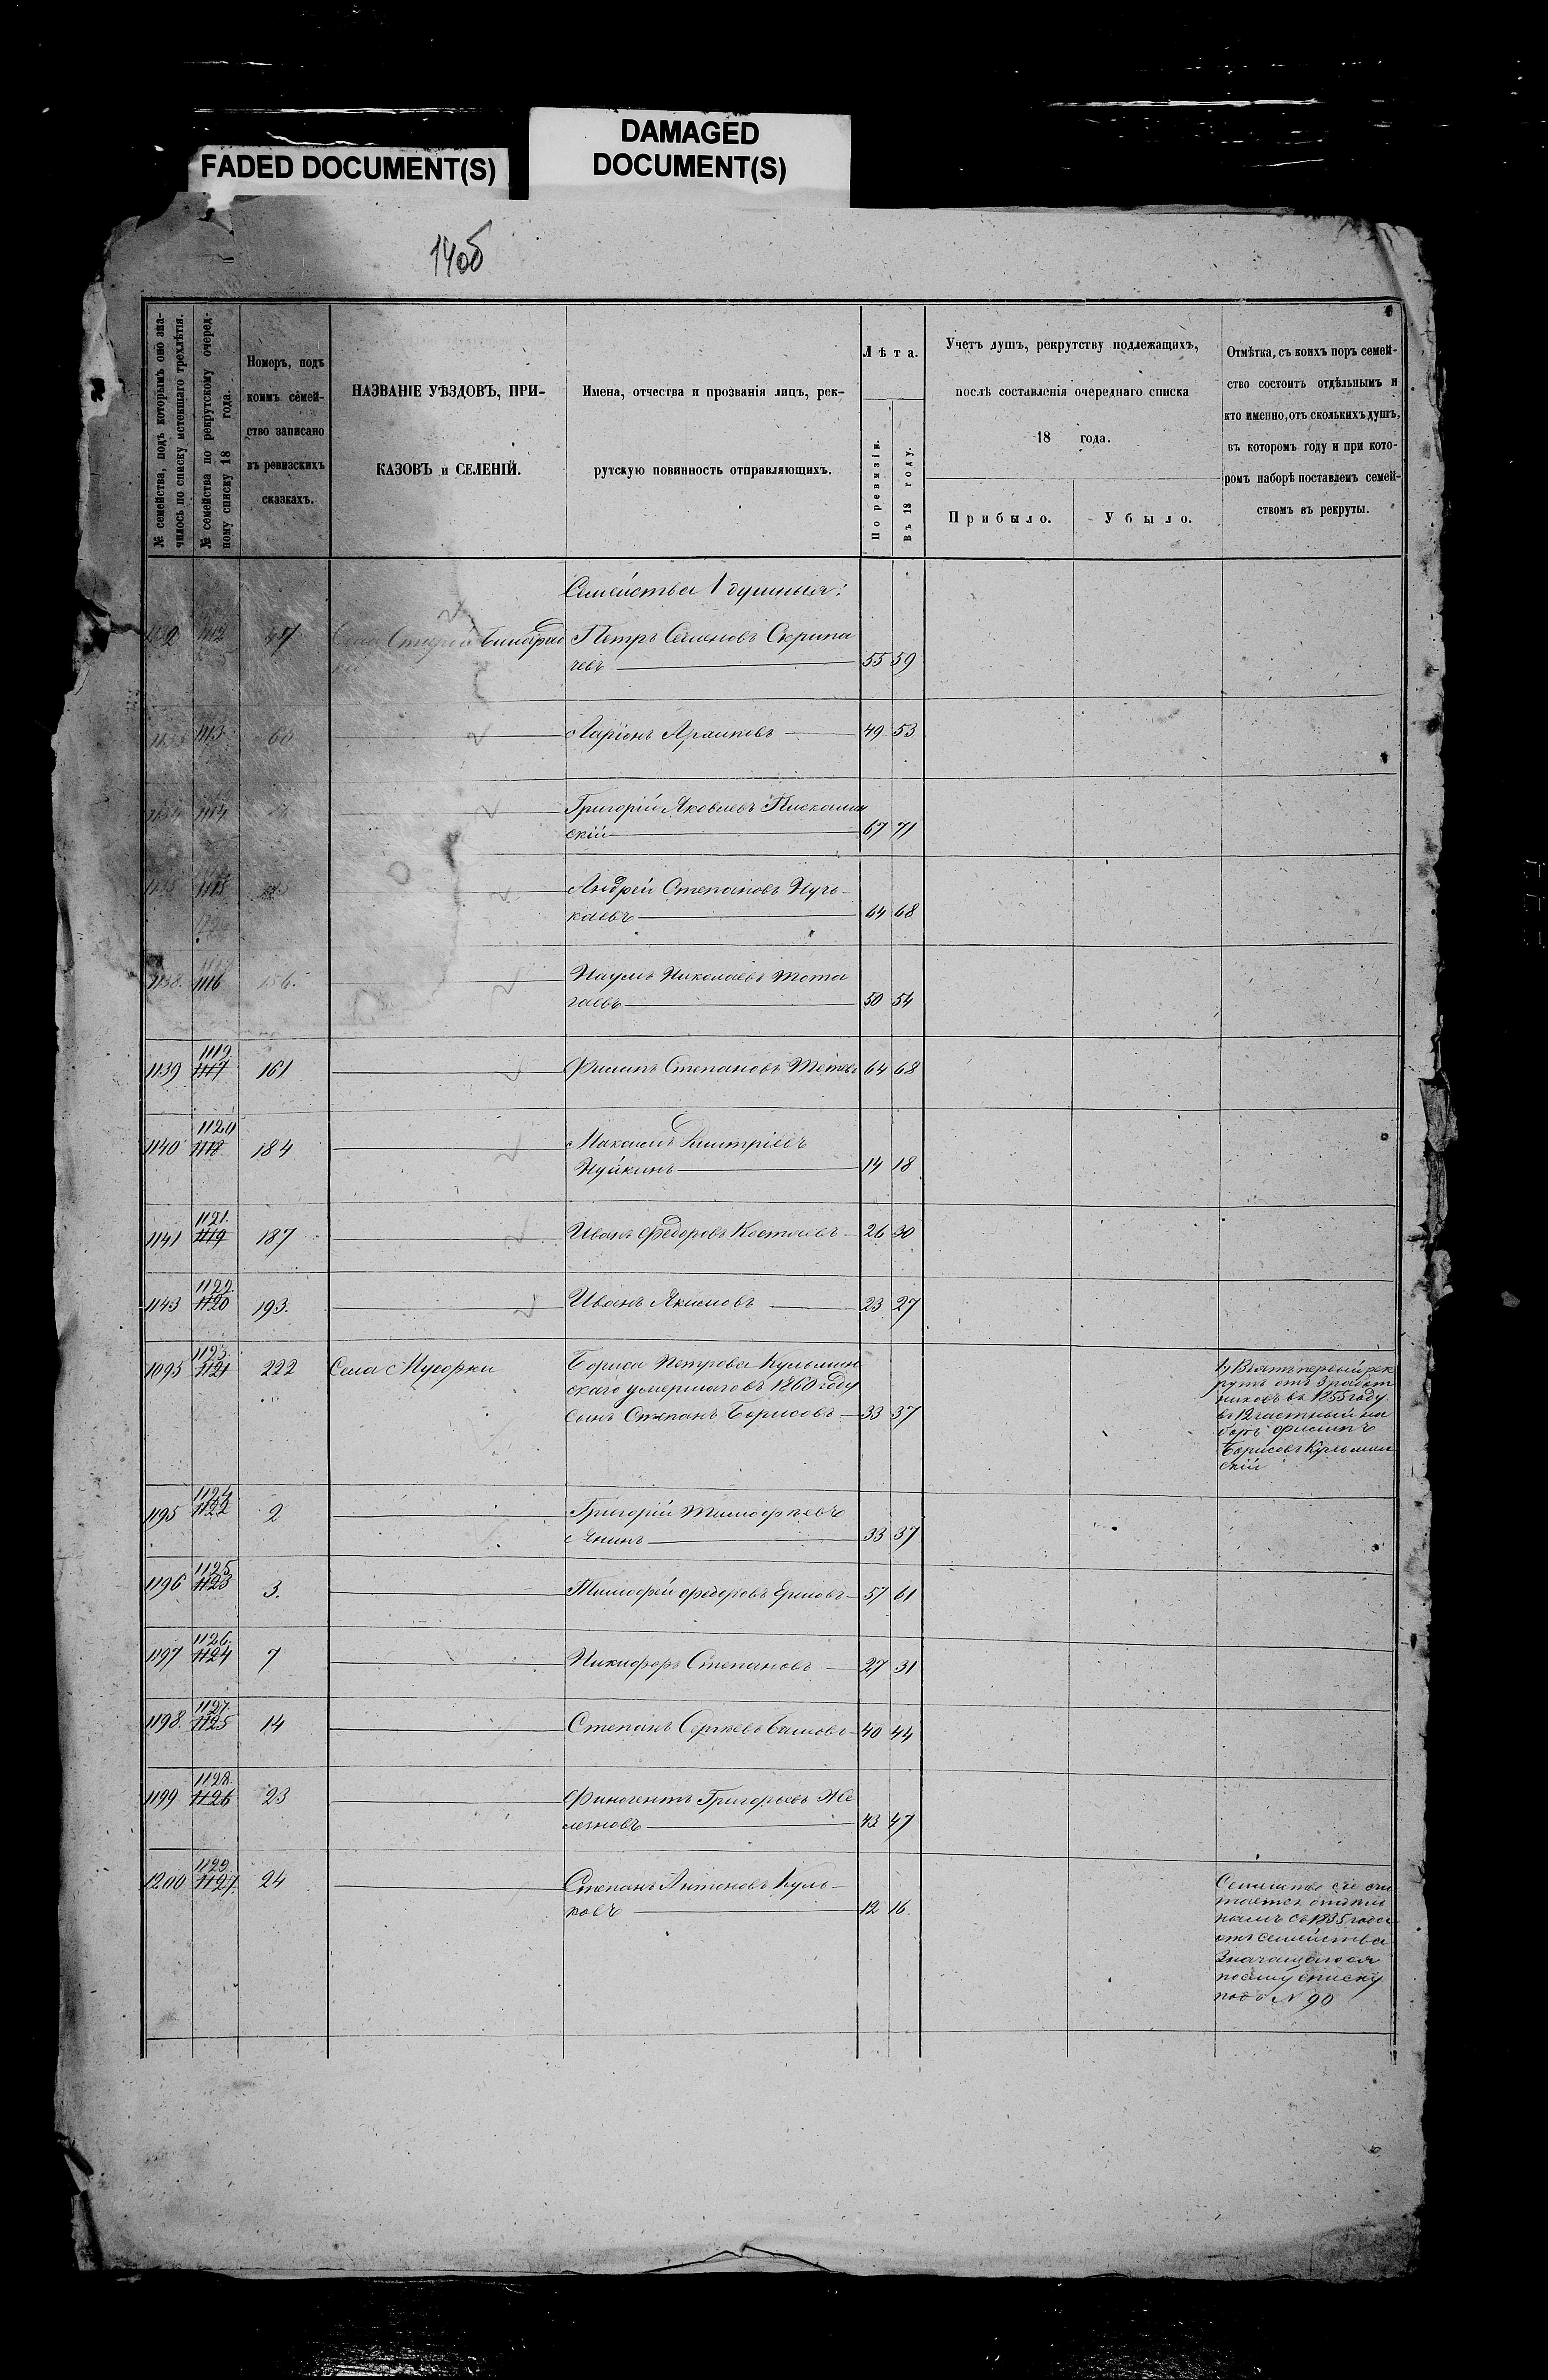 FADED DOCUMENT(S)
DAMAGED
DOCUMENT(S)
140б
№ семейства, подъ которымъ оно зна-
чилось по списку истекшаго трехлѣтія.
№ семейства по рекрутскому очеред-
ному списку 18 года.
Номеръ, подъ
коимъ семей-
ство записано
въ ревизскихъ
сказкахъ.
НАЗВАНІЕ УѢЗДОВЪ, ПРИ-
КАЗОВЪ и СЕЛЕНІЙ.
Имена, отчества и прозванія лицъ, рек-
рутскую повинность отправляющихъ.
Лѣта.
По ревизіи.
Въ 18 году.
Учетъ душъ, рекрутству подлежащихъ,
послѣ составленія очереднаго списка
18 года.
Прибыло.
Убыло.
Отмѣтка, съ коихъ поръ семей-
ство состоитъ отдѣльнымъ и
кто именно, отъ сколькихъ душъ,
въ котором году и при кото-
ромъ наборѣ поставленъ семей-
ствомъ въ рекруты.
Семейства 1 душныя:
1112 47 Петръ Семеновъ Скрипа
чевъ 55 59
1113 60 Ларіонъ 49 53
1114 Григорій Яковлевъ
скій 67 71
1115 Андрей Степановъ Нучь-
каевъ 64 68
1138. 1116 156. Наумъ Николаевъ Тота
гаевъ 50 54
1119.
1139 1117 161 Филипъ Степановъ 64 68
1120
1140 1118 184 Максимъ Дмитріевъ
Нуйкинъ 14 18
1121.
1141 1119 187 Иванъ Федоровъ Костаевъ 26 30
1122.
1143 1120 193. Иванъ Якимовъ 23 27
1123.
1095 1121 222 Села Мусорки Бориса Петрова Кульмин
скаго умершаго въ 1860 году
сынъ Степанъ Борисовъ 33 37
1) Взятъ первый рек
рутъ отъ 3 работ
никовъ въ 1855 году
въ 12 частный на
боръ Филипъ
Борисовъ Кульмин
скій
1124
1195 1122 2 Григорій Тимофѣевъ
Янинъ 33 37
1125
1196 1123 3. Тимофей Федоровъ 57 61
1126.
1197 1124 7 Никифоръ Степановъ 27 31
1127.
1198. 1125 14 Степанъ Сергѣевъ 40 44
1128.
1199 1126 23 Финогентъ Григорьевъ Же
лезновъ 43 47
1129.
1200 1127. 24 Степанъ Антоновъ Куль-
ковъ 12 16.
Семейство сіе счи
тается отдѣль
нымъ съ 1835 года
отъ семейства
значащагося
по сему списку
подъ N 90